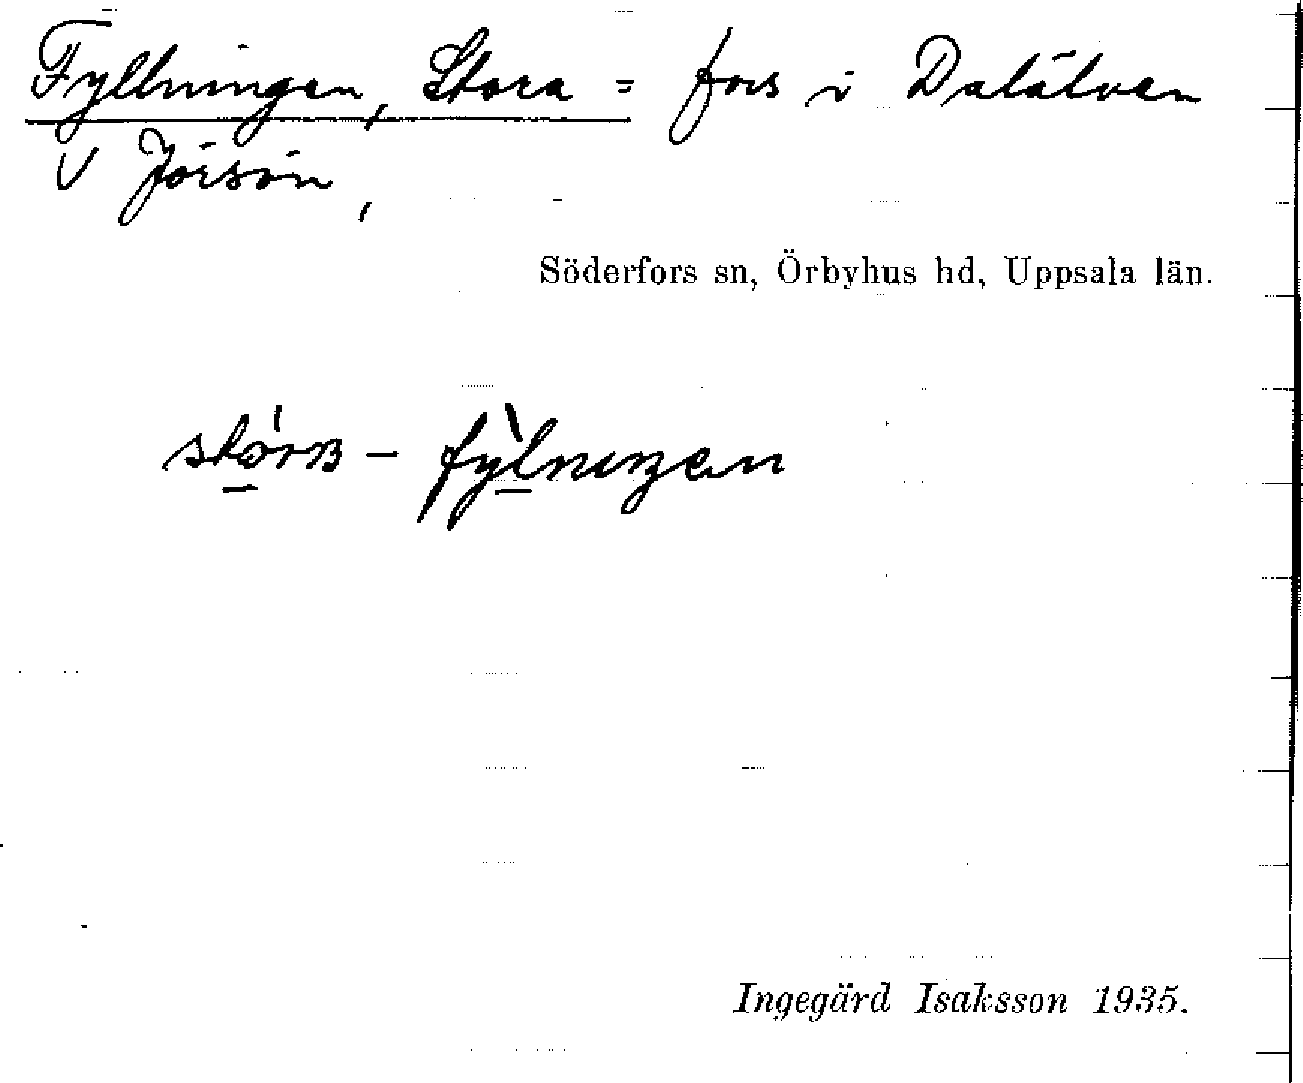 Fyllningen, Stora = fors i Dalälven
V Jörsön,
Söderfors sn, Örbyhus hd, Uppsala län.
Ingegärd Isaksson 1935.